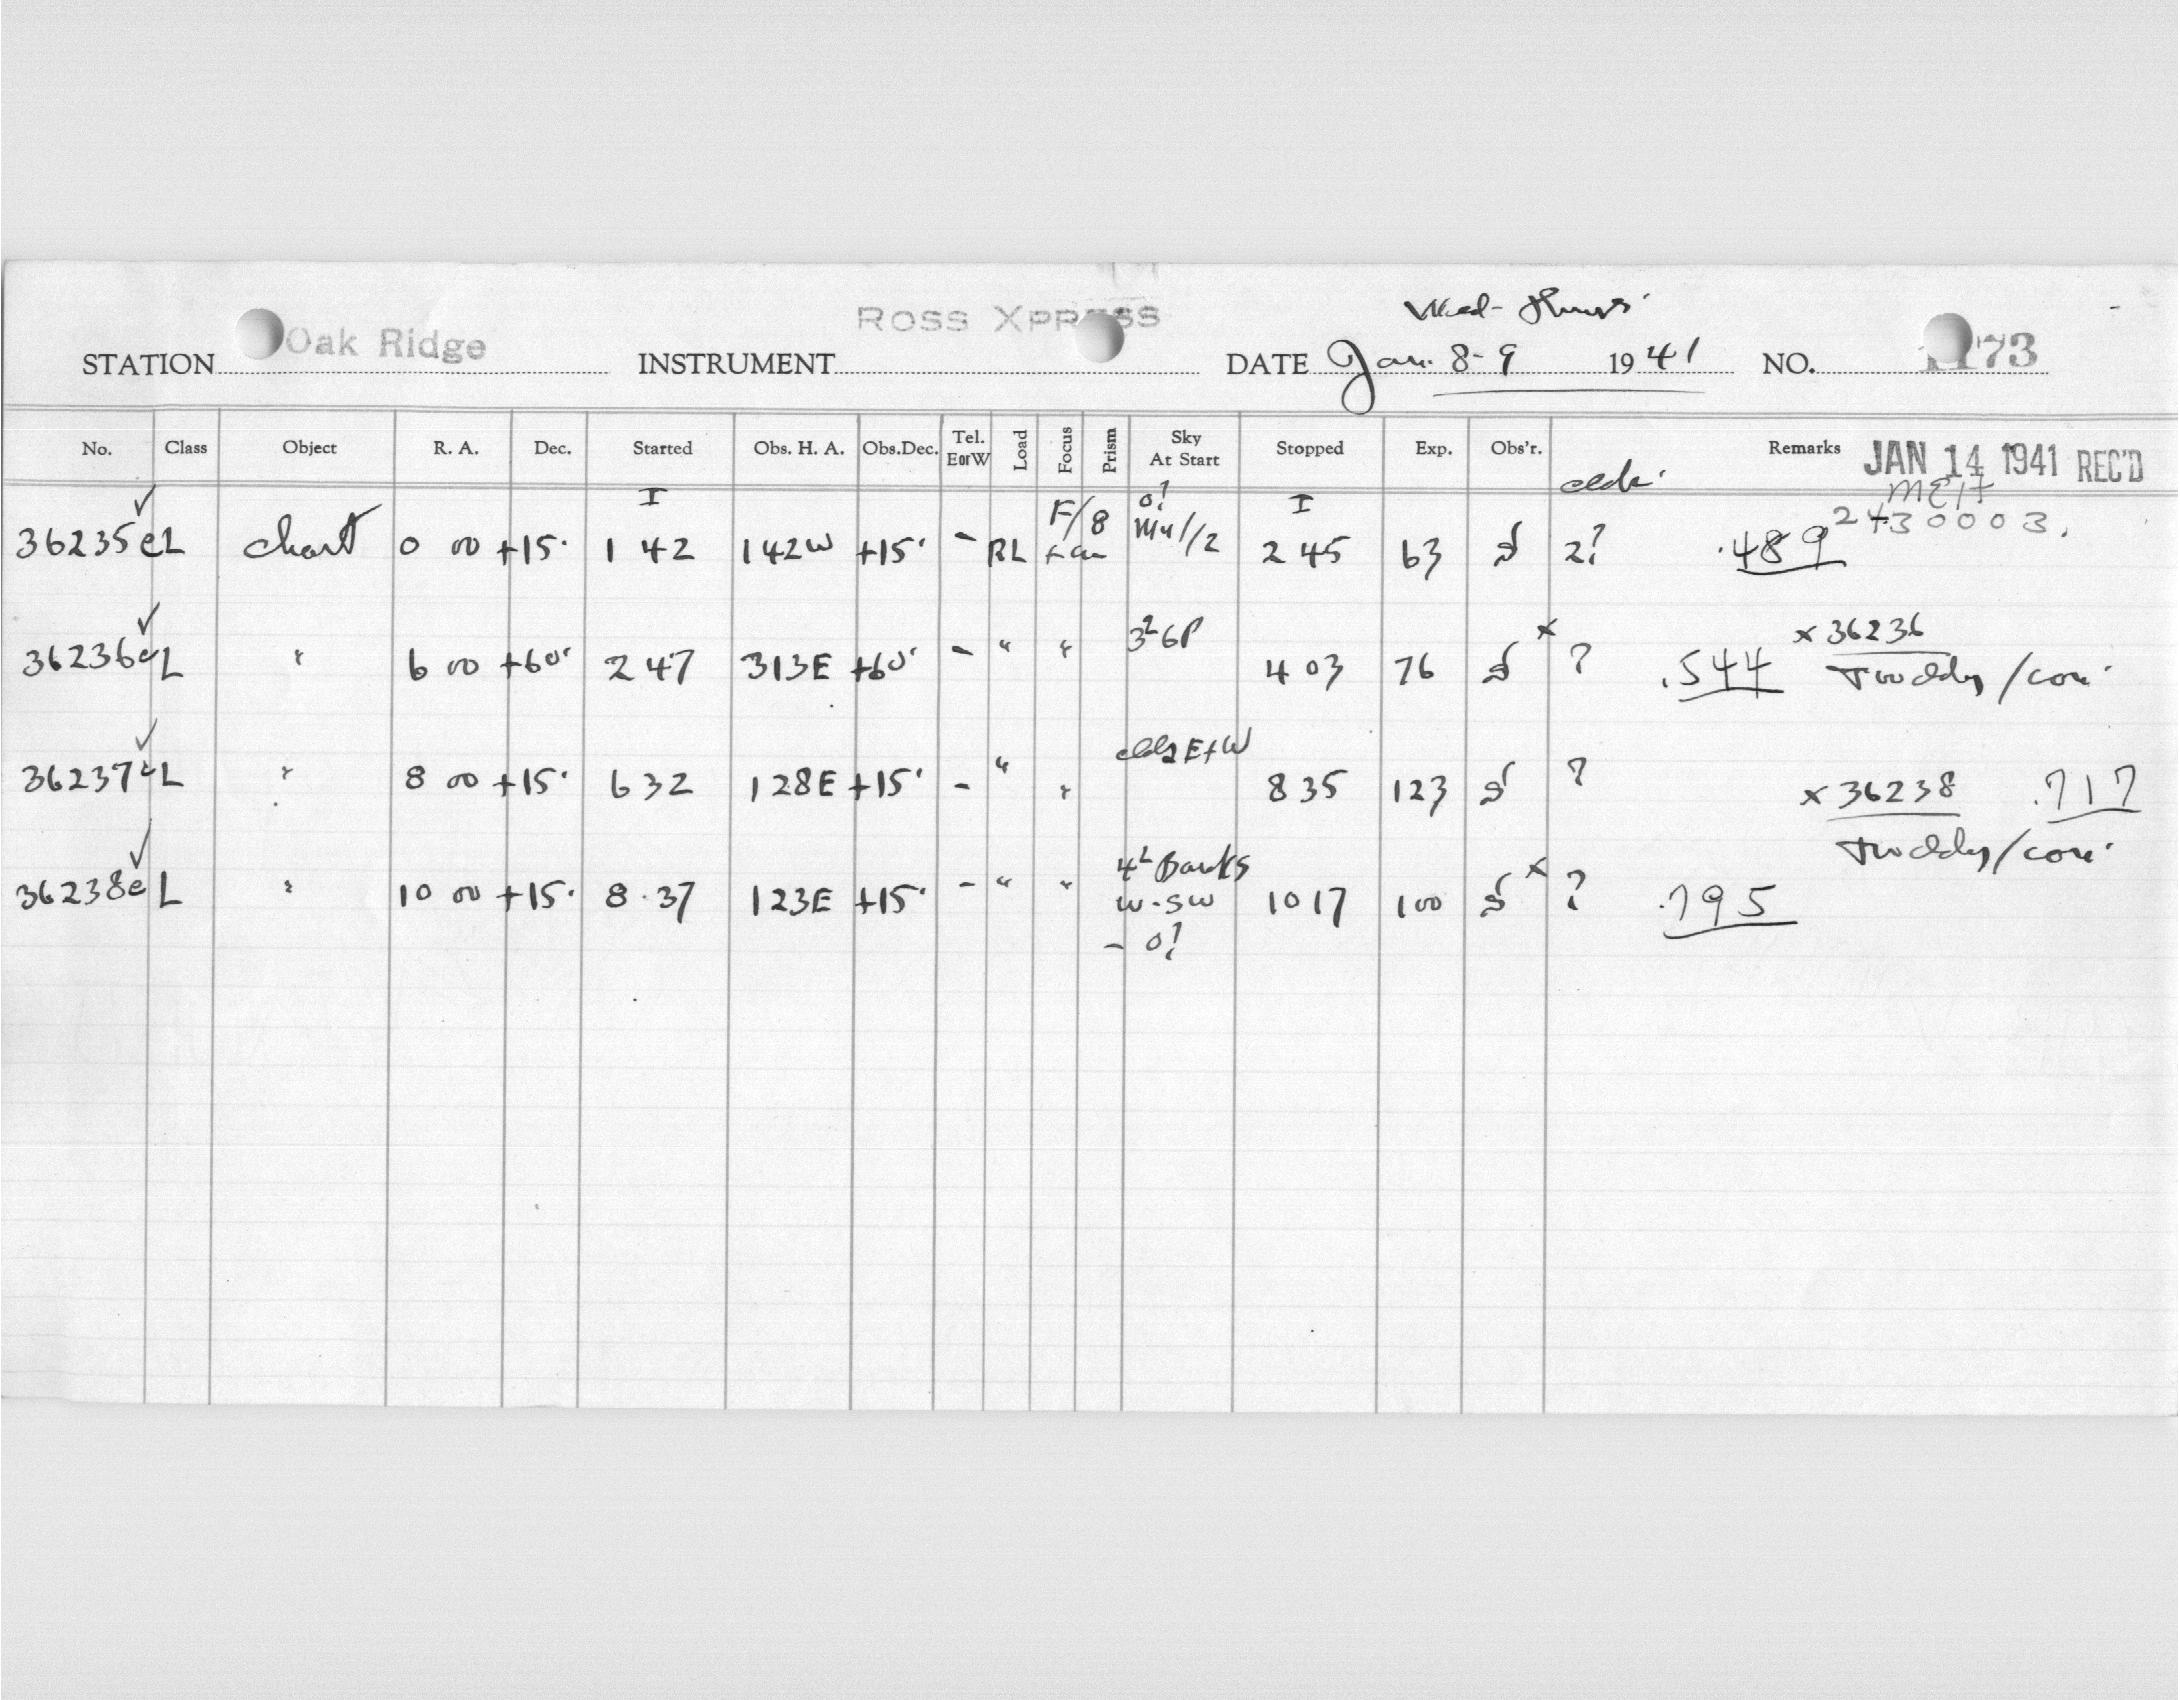 Wed-Thurs.
STATION Oak Ridge INSTRUMENT ROSS XPRESS DATE Jan. 8-9 1941 NO. 1173
No. Class Object R. A. Dec. Started Obs. H. A. Obs. Dec. Tel. E or W Load Focus Prism Sky At Start Stopped Exp. Obs'r. Remarks JAN 14 1941 REC'D
2430003.
36235e L chart 0 00 +15° I 1 42 142W +15° - RL F/8 0! I 2 45 63 2? .489
36236e L " 6 00 +60° 2 47 313E +60° - " " 4 03 76 x ? .544 x 36236
36237e L " 8 00 +15° 6 32 128E +15° - " " clds E+W 8 35 123 ? x 36238 .717
36238e L " 10 00 +15° 8 37 123E +15° - " " 4 Banks W-SW - 0! 10 17 100 x ? .795